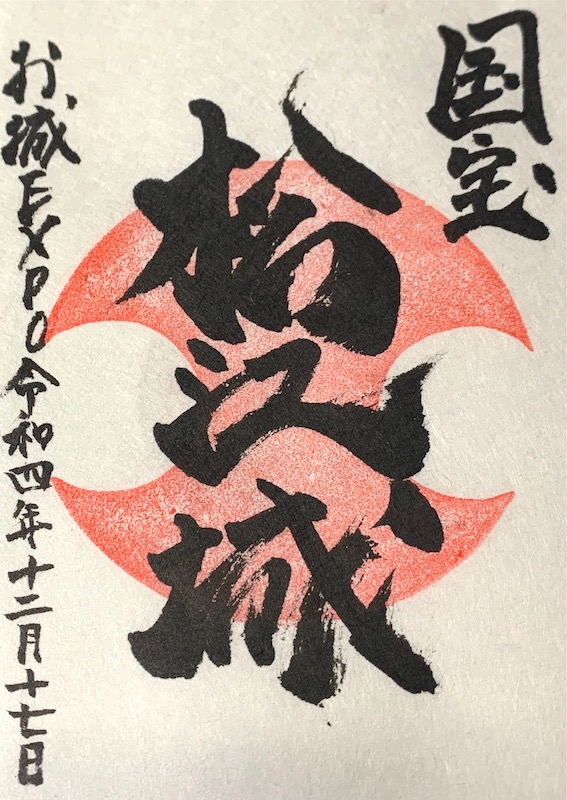 国宝
松江城
お城EXPO令和四年十二月十七日